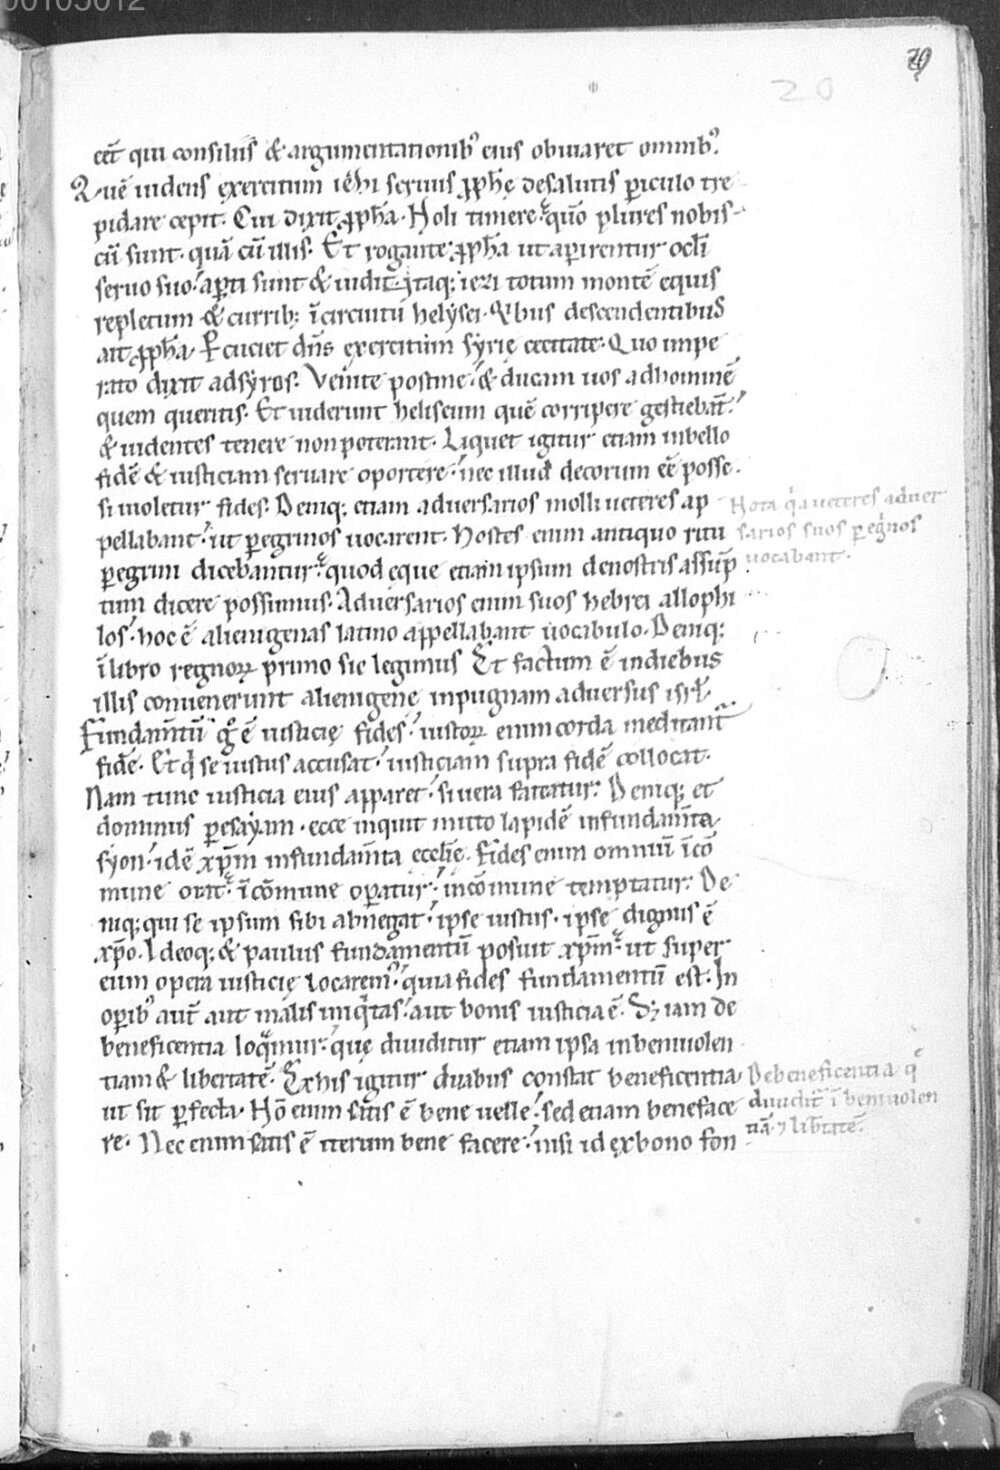 00105012
29
20
eet̄ qui consiliis & argumentationib; eius obuiaret omnib;
Quē uidens exercitum iezi seruus ꝓph̄ę desalutis ꝑiculo tre
pidare cepit. Cui dixit ꝓph̄a. Noli timere. quō plures nobis
cū sunt. quā cū illis. Et rogante ꝓph̄a ut aperirentur ocl̄i
seruo suo. aꝑti sunt & uidit. Itaq; iezi totum montē equis
repletum & currib; ī circuitu helysei. Qibus descendentibus
ait ꝓph̄a. Percuciet dn̄s exercitum syrię cecitate. Quo impe
rato dixit adsyros. Venite postme. & ducam uos adhominē
quem queritis. Et uiderunt heliseum quē corripere gestiebant.
& uidentes tenere nonpoterant. Liquet igitur etiam inbello
fidē & iusticiam seruare oportere. nec illud decorum eē posse.
si uioletur fides. Deniq; etiam aduersarios molli ueteres ap
pellabant. ut ꝑegrinos uocarent. Hostes enim antiquo ritu
ꝑegrini dicebantur. quod eque etiam ipsum denostris assūp
tum dicere possumus. Aduersarios enim suos hebrei allophi
los. hoc ē alienigenas latino appellabant uocabulo. Deniq;
ī libro regnoꝝ primo sic legimus Et factum ē indiebus
illis conuenerunt alienigenę inpugnam aduersus isrl̄.
Fundam̄tū gͦ ē iusticię fides. iustoꝝ enim corda meditant̄
fidē. Et q̇ se iustus accusat. iusticiam supra fidē collocat.
Nam tunc iusticia eius apparet. si uera fateatur. Deniq; et
dominus ꝑ esayam. ecce inquit mitto lapidē infundam̄ta
syon. idē xp̄m infundam̄ta ęccl̄ię. Fides enim omniū ī cō
mune orat. ī cōmune oꝑatur. incōmune temptatur. De
niq; qui se ipsum sibi abnegat. ipse iustus. ipse dignus ē
xp̄o. Ideoq; & paulus fundamentū posuit xp̄m. ut super
eum opera iusticię locarem;. quia fides fundamentū est. In
oꝑib; aut̄ aut malis iniq̇tas. aut bonis iusticia ē. Sꝫ iam de
beneficentia loq̇mur. quę diuiditur etiam ipsa inbeniuolen
tiam & libertatē. Ex his igitur duabus constat beneficentia
ut sit ꝑfecta. Nō enim satis ē bene uelle. sed etiam beneface
re. Nec enim satis ē iterum bene facere. nisi id exbono fon
Nota q̇a ueteres aduer
sarios suos ꝑegrinos
uocabant.
De beneficentia q̄
diuidit̄ ī beniuolen
tiā ⁊ lib̄tatē.